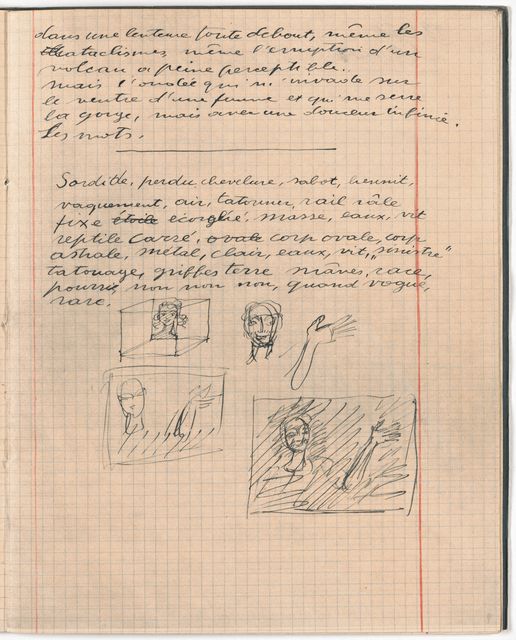 dans une lenteur toute debout, même les
cataclismes même l'erruption d'un
volcan a peine perceptible.
mais l'ondée qui m' sur
le ventre d'une femme et qui me serre
la gorge, mais avec une douceur infinie.
Les mots.
Sordide, perdu chevelure, sabot, hennit,
vaguement, air, tatonner, rail râle
fixe étoile écorché, masse, eaux, vit
reptile carré, ovale corp ovale, corp
astrale, métal, clair, eaux, vit, "sinistre"
tatouage, griffes terre mânes, race,
pourrie non non non, quand vogue,
rare.